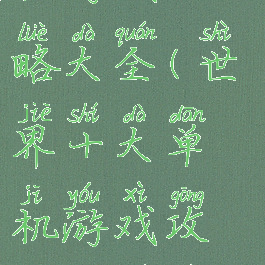 lüè dà quán shì
略大全(世
jiè shí dà dān
界十大单
jī yóu xì gōng
机游戏攻